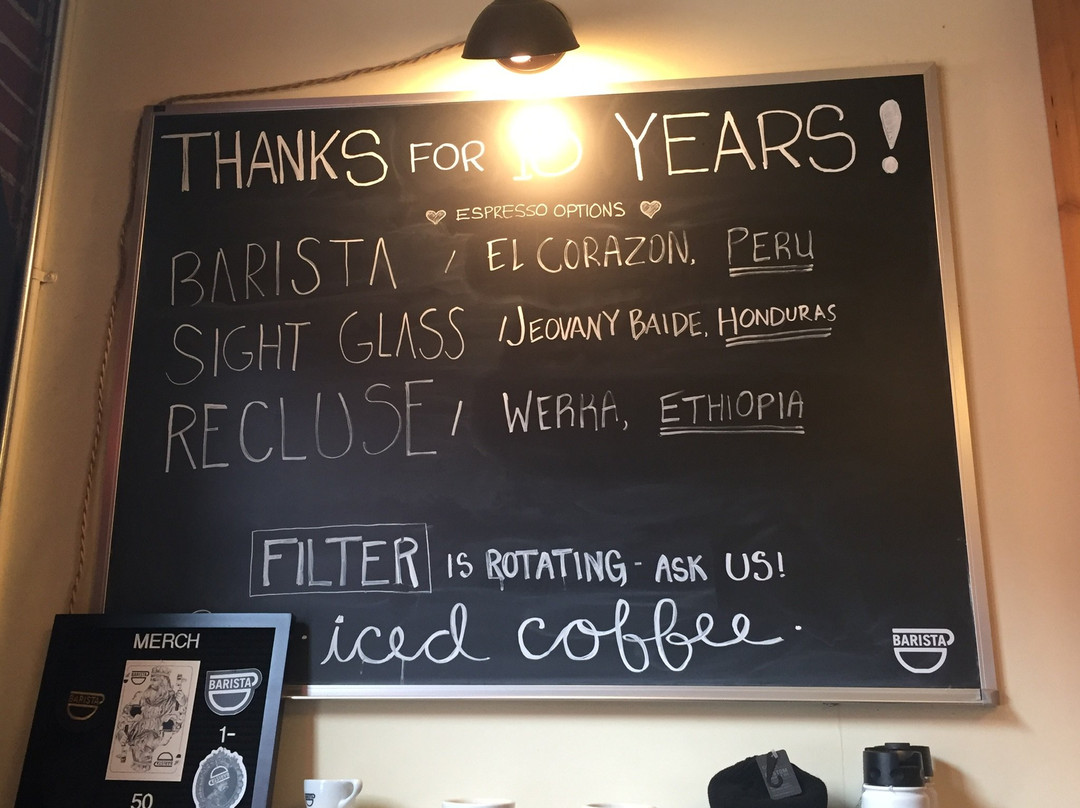 THANKS FOR 10 YEARS!
ESPRESSO OPTIONS
BARISTA / EL CORAZON, PERU
SIGHT GLASS / JEOVANY BAIDE, HONDURAS
RECLUSE / WERKA, ETHIOPIA
FILTER IS ROTATING - ASK US!
iced coffee.
BARISTA
MERCH
BARISTA
BARISTA
1-
50